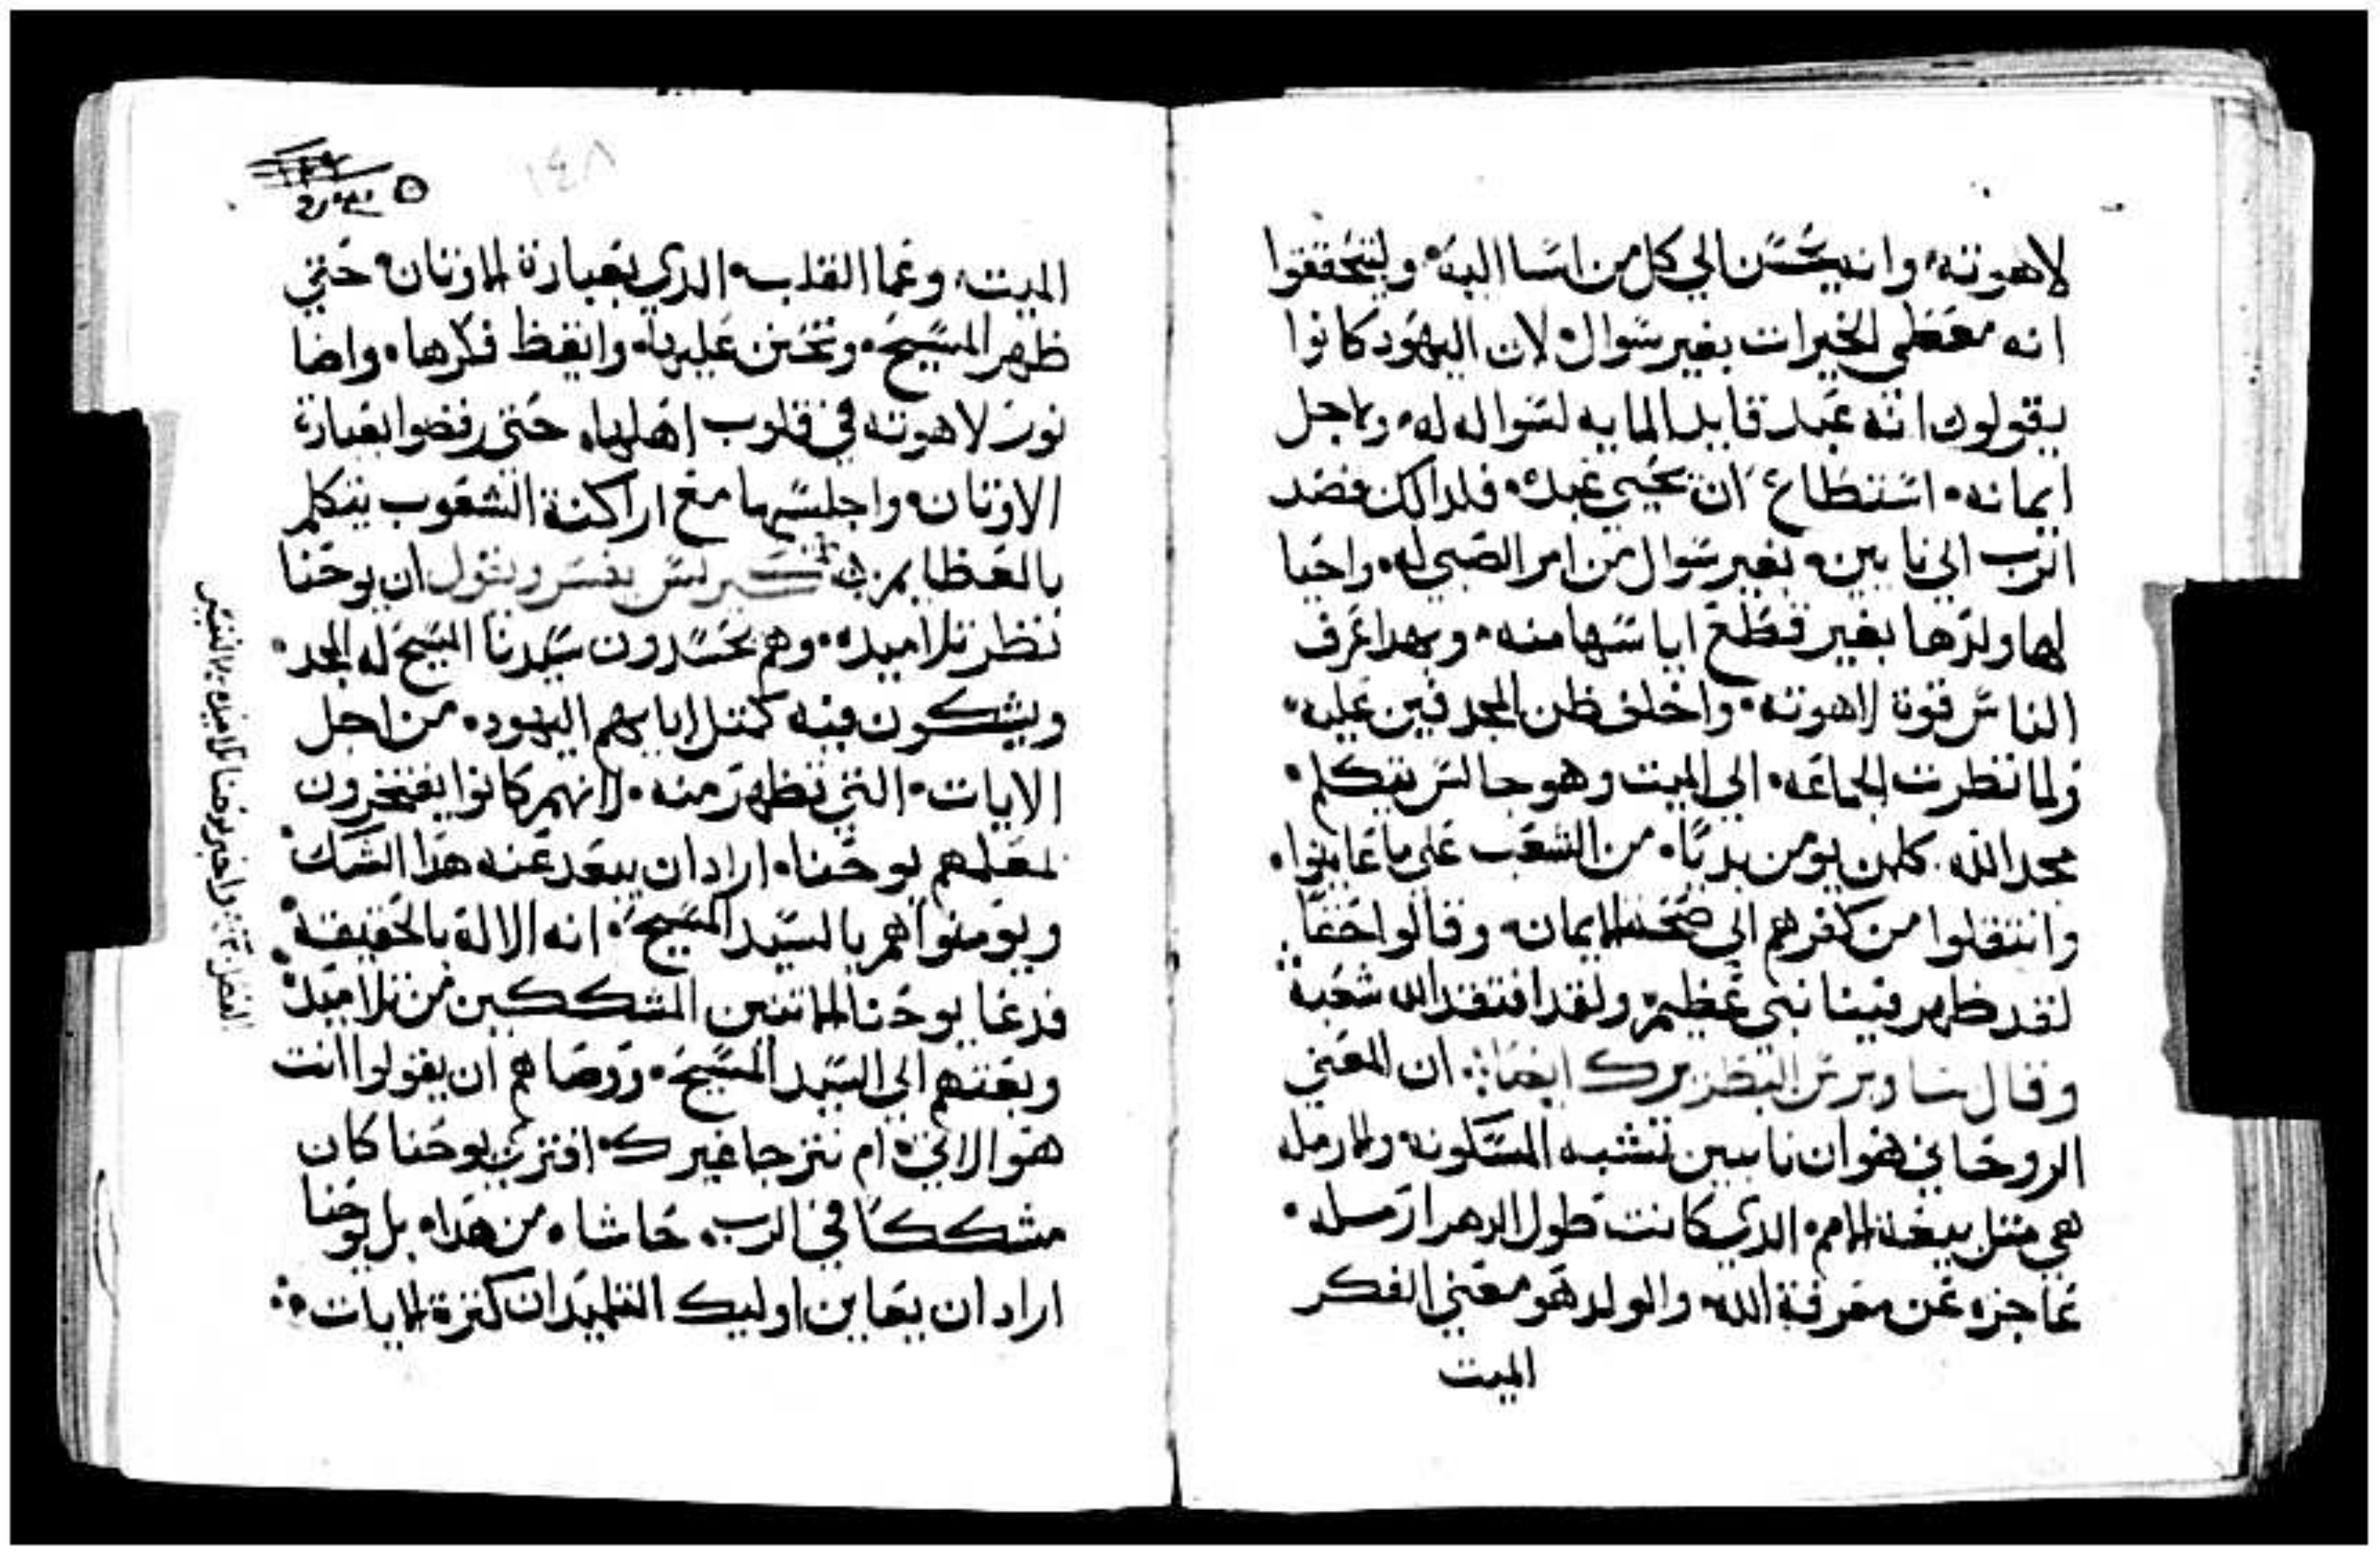 لاهوته. وانه يحسن الي كل من اسا اليه. وليتحققوا
انه معطي الخيرات بغير سوال. لان اليهود كانوا
يقولون انه عبد قايد المايه لسواله له. ولاجل
ايمانه. استطاع ان يحيي عبده. فلدالك قصد
الرب الي نايين. بغير سوال من امر الصبي له. واحيا
لها ولدها بغير قطع اياسها منه. وبهدا عرف
الناس قوة لاهوته. واخلف ظن المجدفين عليه.
ولما نظرت الجماعه. الي الميت وهو جالس يتكلم.
مجد الله. كلمن يومن بديا. من الشعب علي ما عاينوا.
وانتقلوا من كفرهم الي صحة الايمان. وقالوا حقا
لقد ظهر فينا نبي عظيم. ولقد افتقد الله شعبه
وقال ساويرس البطريرك ايضا. ان المعني
الروحاني هو ان نايين تشبه المسكونه. والارمله
هي مثل بيعة الامم. الدي كانت طول الدهر ارمله.
عاجزه عن معرفة الله. والولد هو معني الفكر
الميت
١٤٨
الميت. وعما القلب. الدي بعبادة الاوتان. حتي
ظهر المسيح. وتحنن عليها. وايقظ فكرها. واضا
نور لاهوته في قلوب اهلها. حتي رفضوا بعبادة
الاوتان. واجلسها مع اراكنة الشعوب يتكلم
بالعظايم. كيرلس يفسر ويقول ان يوحنا
نظر تلاميده. وهم يحسدون سيدنا المسيح له المجد.
ويشكون فيه كمتل ابايهم اليهود. من اجل
الايات. التي تظهر منه. لانهم كانوا يفتخرون
لمعلمهم يوحنا. اراد ان يبعد عنه هدا الشك.
ويومنوا هم بالسيد المسيح. انه الالاه بالحقيقة.
فدعا يوحنا الاتنين المشككين من تلاميده.
وبعتهم الي السيد المسيح. ووصاهم ان يقولوا انت
هو الاتي. ام نترجا غيرك. افتري يوحنا كان
مشككا في الرب. حاشاه من هدا. بل يوحنا
اراد ان يعاين اوليك التلميدان كترة الايات.
واخبر يوحنا تلاميده